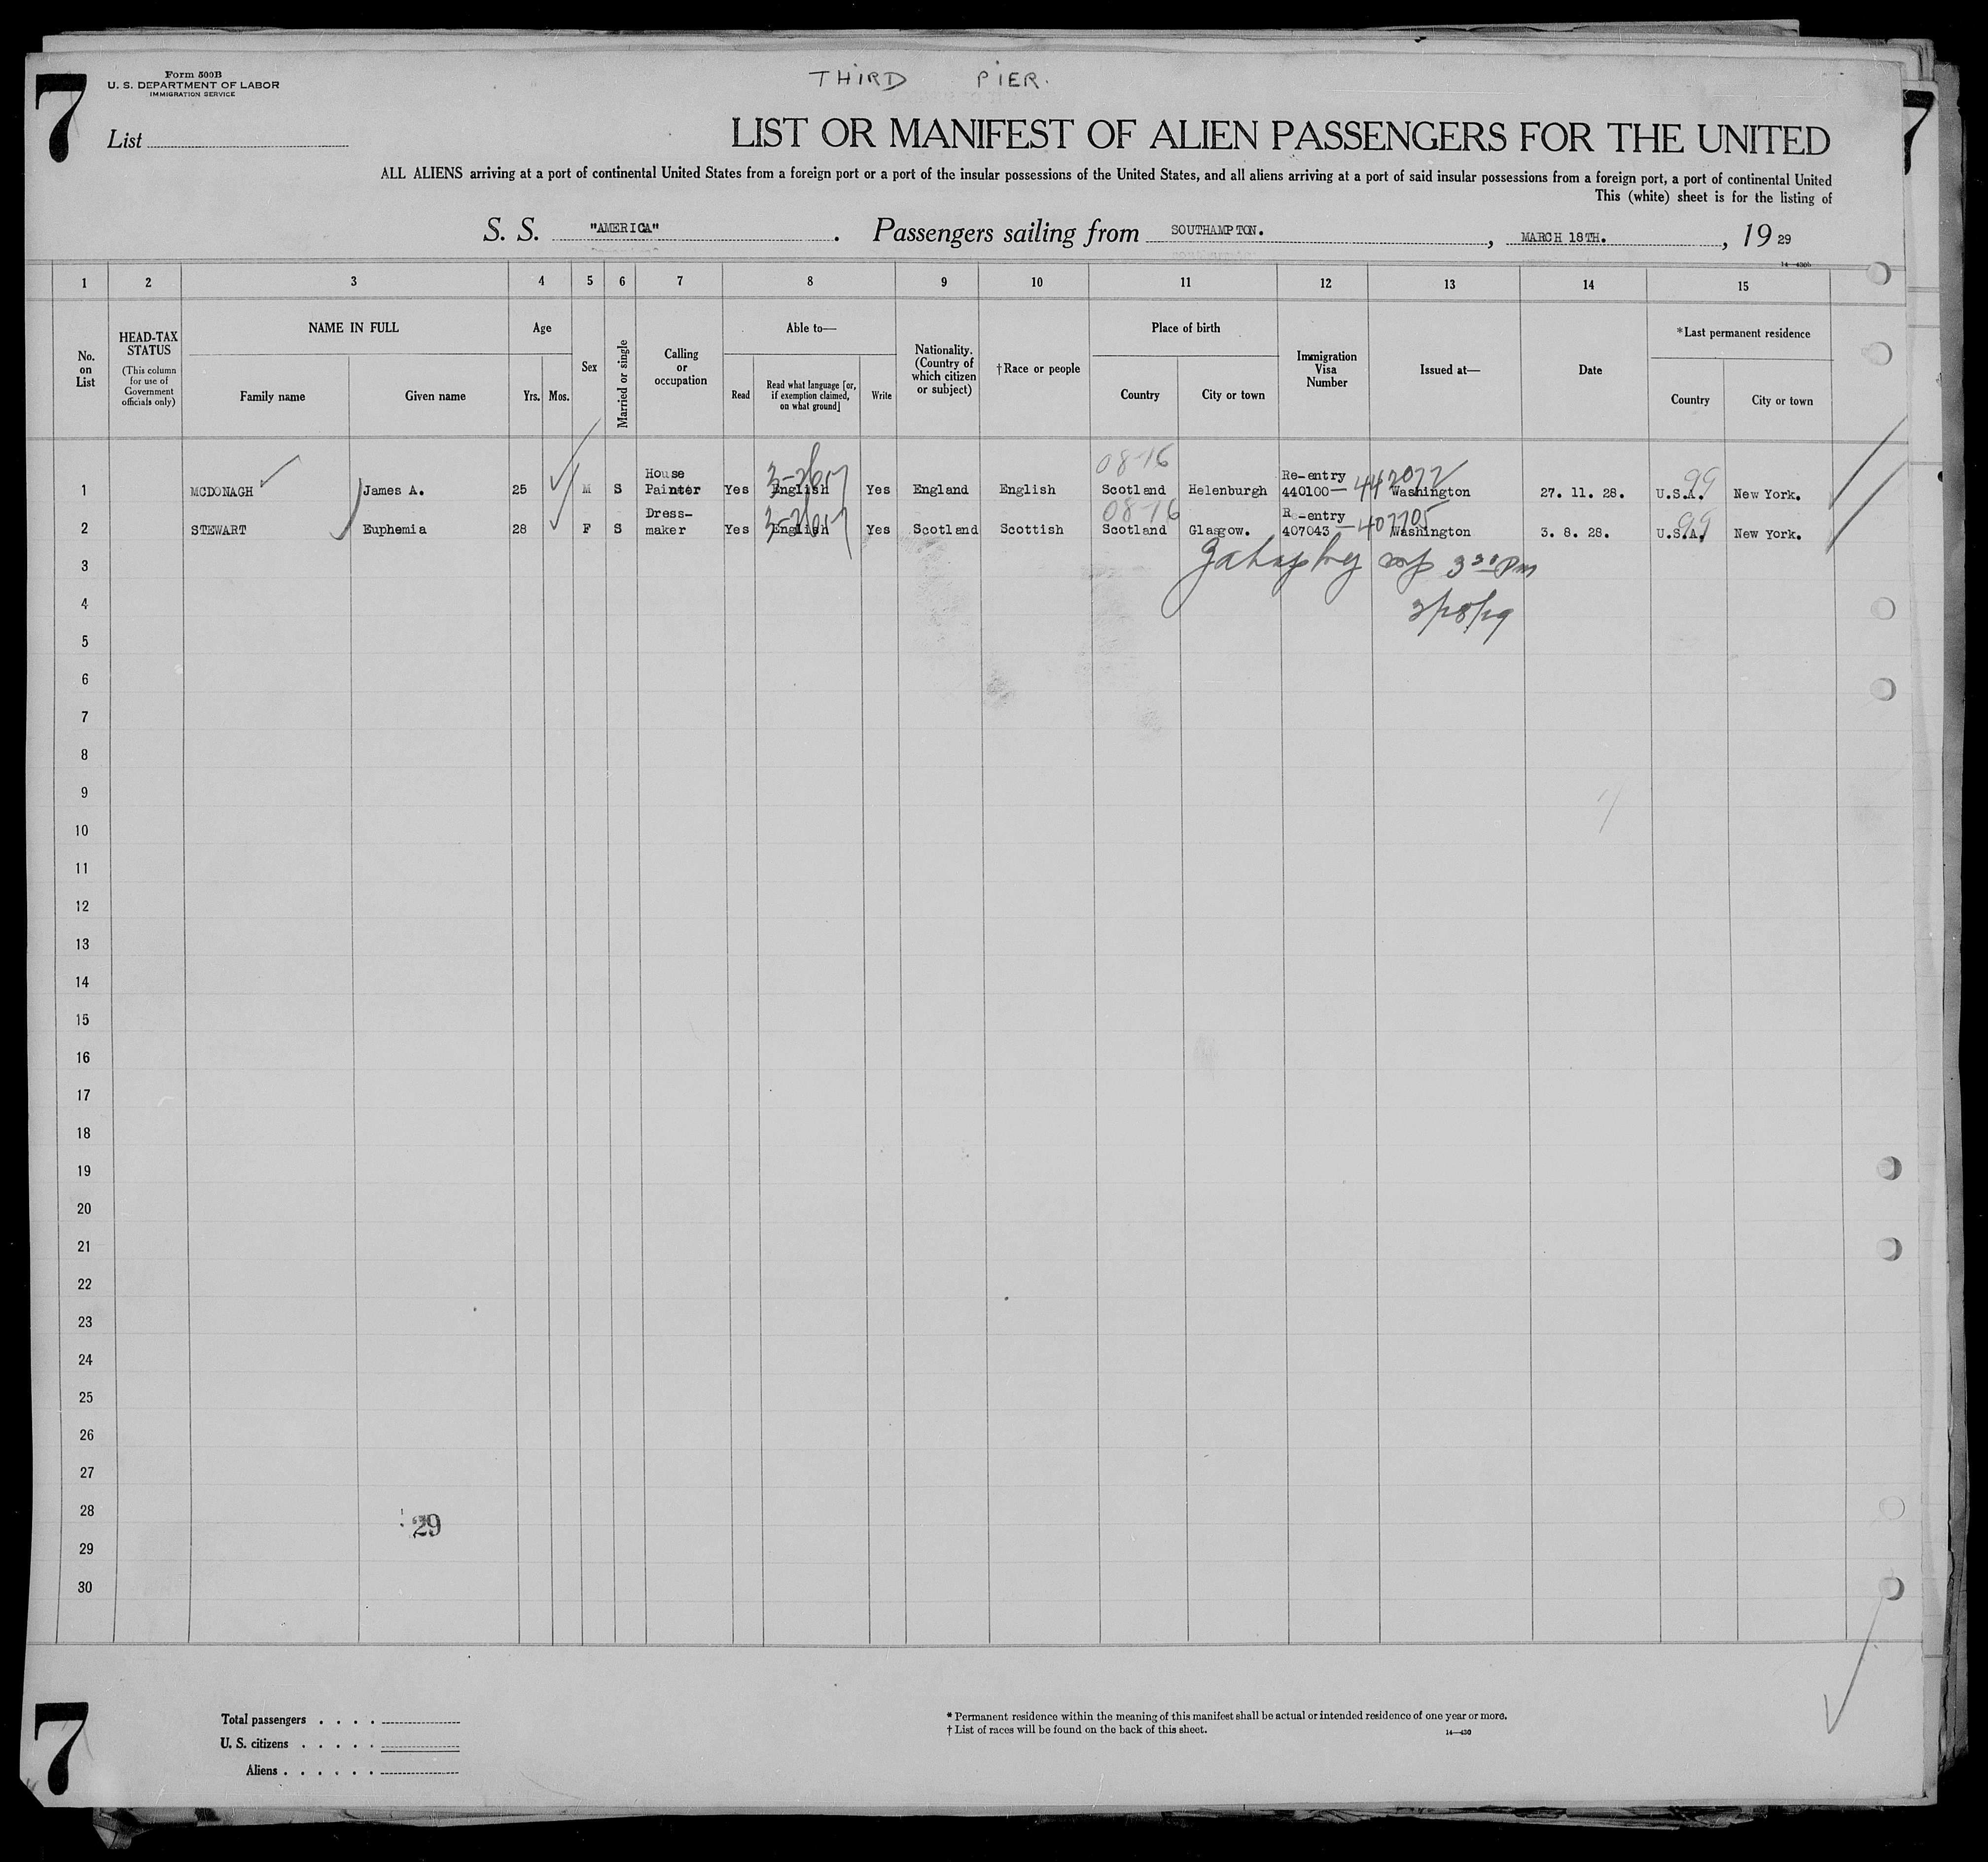 THIRD PIER.
7
Form 500B
U. S. DEPARTMENT OF LABOR
IMMIGRATION SERVICE
7
List
LIST OR MANIFEST OF ALIEN PASSENGERS FOR THE UNITED
ALL ALIENS arriving at a port of continental United States from a foreign port or a port of the insular possessions of the United States, and all aliens arriving at a port of said insular possessions from a foreign port, a port of continental United
This (white) sheet is for the listing of
S. S. "AMERICA". Passengers sailing from SOUTHAMPTON., MARCH 18TH., 19 29
14—430b
1 2 3 4 5 6 7 8 9 10 11 12 13 14 15
No. on List
HEAD-TAX STATUS
(This column for use of Government officials only)
NAME IN FULL
Family name Given name
Age
Yrs. Mos.
Sex
Married or single
Calling or occupation
Able to—
Read Read what language [or, if exemption claimed, on what ground] Write
Nationality. (Country of which citizen or subject)
†Race or people
Place of birth
Country City or town
Immigration Visa Number
Issued at—
Date
*Last permanent residence
Country City or town
08-16
1 MCDONAGH James A. 25 M S House Painter Yes English Yes England English Scotland Helenburgh Re-entry 440100— 442072 Washington 27. 11. 28. U.S.A. 99 New York.
08-16
2 STEWART Euphemia 28 F S Dress-maker Yes English Yes Scotland Scottish Scotland Glasgow. R -entry 407043 —407705 Washington 3. 8. 28. U.S.A. 99 New York.
3 3 30 Pm
4 3/18/29
5
6
7
8
9
10
11
12
13
14
15
16
17
18
19
20
21
22
23
24
25
26
27
28
29
29
30
7
Total passengers . . . .
U. S. citizens . . . . .
Aliens . . . . . .
* Permanent residence within the meaning of this manifest shall be actual or intended residence of one year or more.
† List of races will be found on the back of this sheet.
14—430